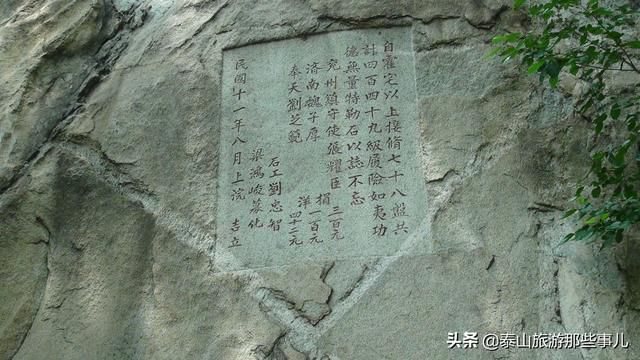 自霍定以上接脩七十八盤共
計四百四十九級履險如夷功
德無量特勒石以誌不忘
兗州鎮守使張耀臣 捐 三百元
濟南魏子厚 一百元
奉天劉芝 洋 四十二元
石工劉忠智
梁鴻峻募化
民國十一年八月上浣 吉立
头条 @泰山旅游那些事儿